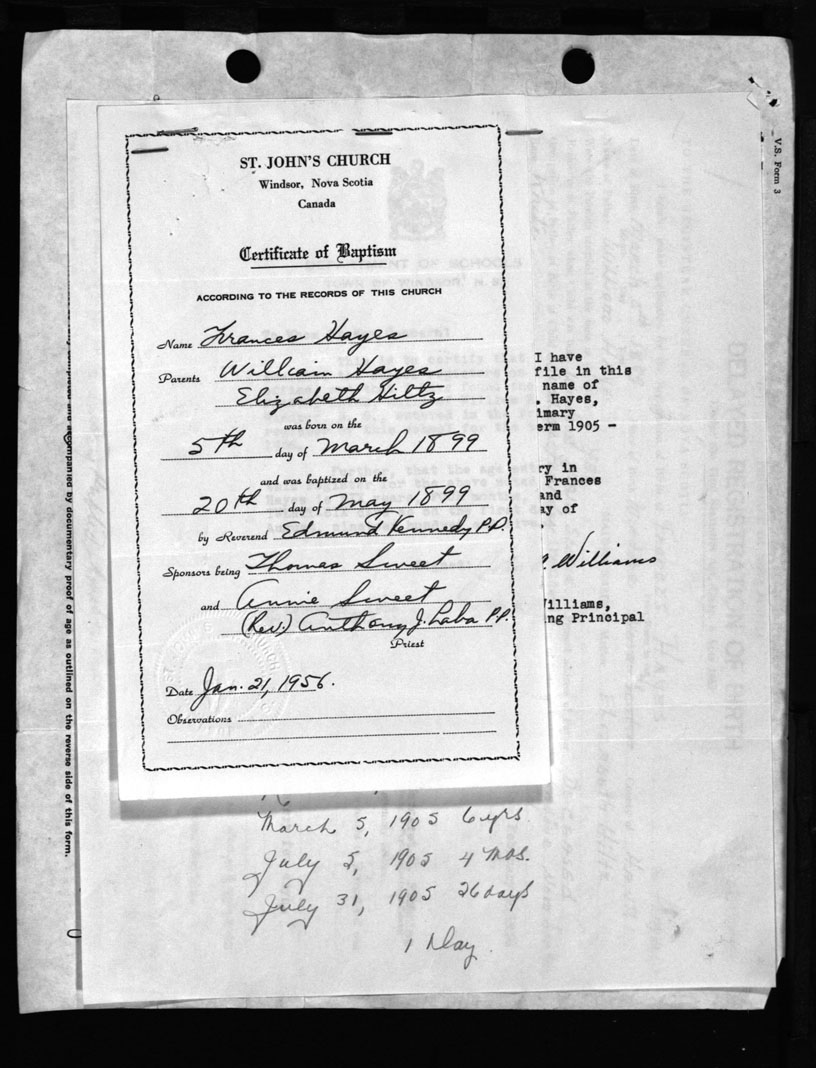 V.S. Form 3
ST. JOHN'S CHURCH
Windsor, Nova Scotia
Canada
Certificate of Baptism
ACCORDING TO THE RECORDS OF THIS CHURCH
Name Frances Hayes
Parents William Hayes
Elizabeth Hiltz
was born on the
5th day of March 1899
and was baptized on the
20th day of May 1899
by Reverend Edmund Kennedy P.P.
Sponsors being Thomas Sweet
and Annie Sweet
(Rev.) Anthony J. Laba P.P.
Priest
Date Jan. 21, 1956.
Observations
I have
file in this
name of
. Hayes,
imary
erm 1905 -
ry in
Frances
and
ay of
Williams
illiams,
ng Principal
accompanied by documentary proof of age as outlined on the reverse side of this form.
March 5, 1905 6 yrs.
July 5, 1905 4 mos.
July 31, 1905 26 days
1 Day